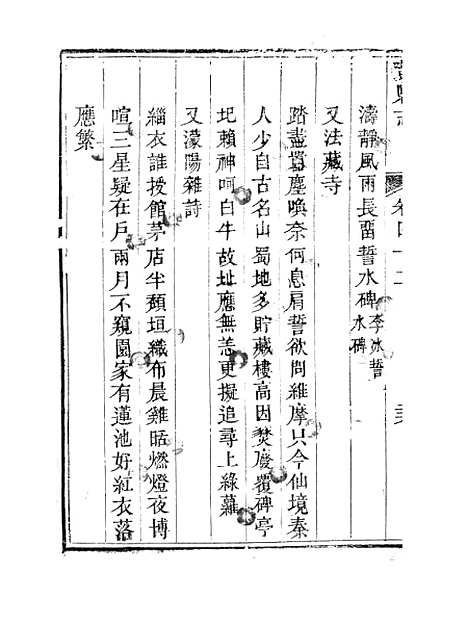 卷四十二
濤靜風雨長留誓水碑李冰誓水碑
又法藏寺
踏盡囂塵喚奈何息肩誓欲問維摩只今仙境秦
人少自古名山蜀地多貯藏樓高因焚廢覆碑亭
圮賴神呵白牛故址應無恙更擬追尋上綠蘿
又濛陽雜詩
緇衣誰授館茅店半頹垣織布晨雞聒燃燈夜博
喧三星疑在戶兩月不窺園家有蓮池好紅衣落
應繁